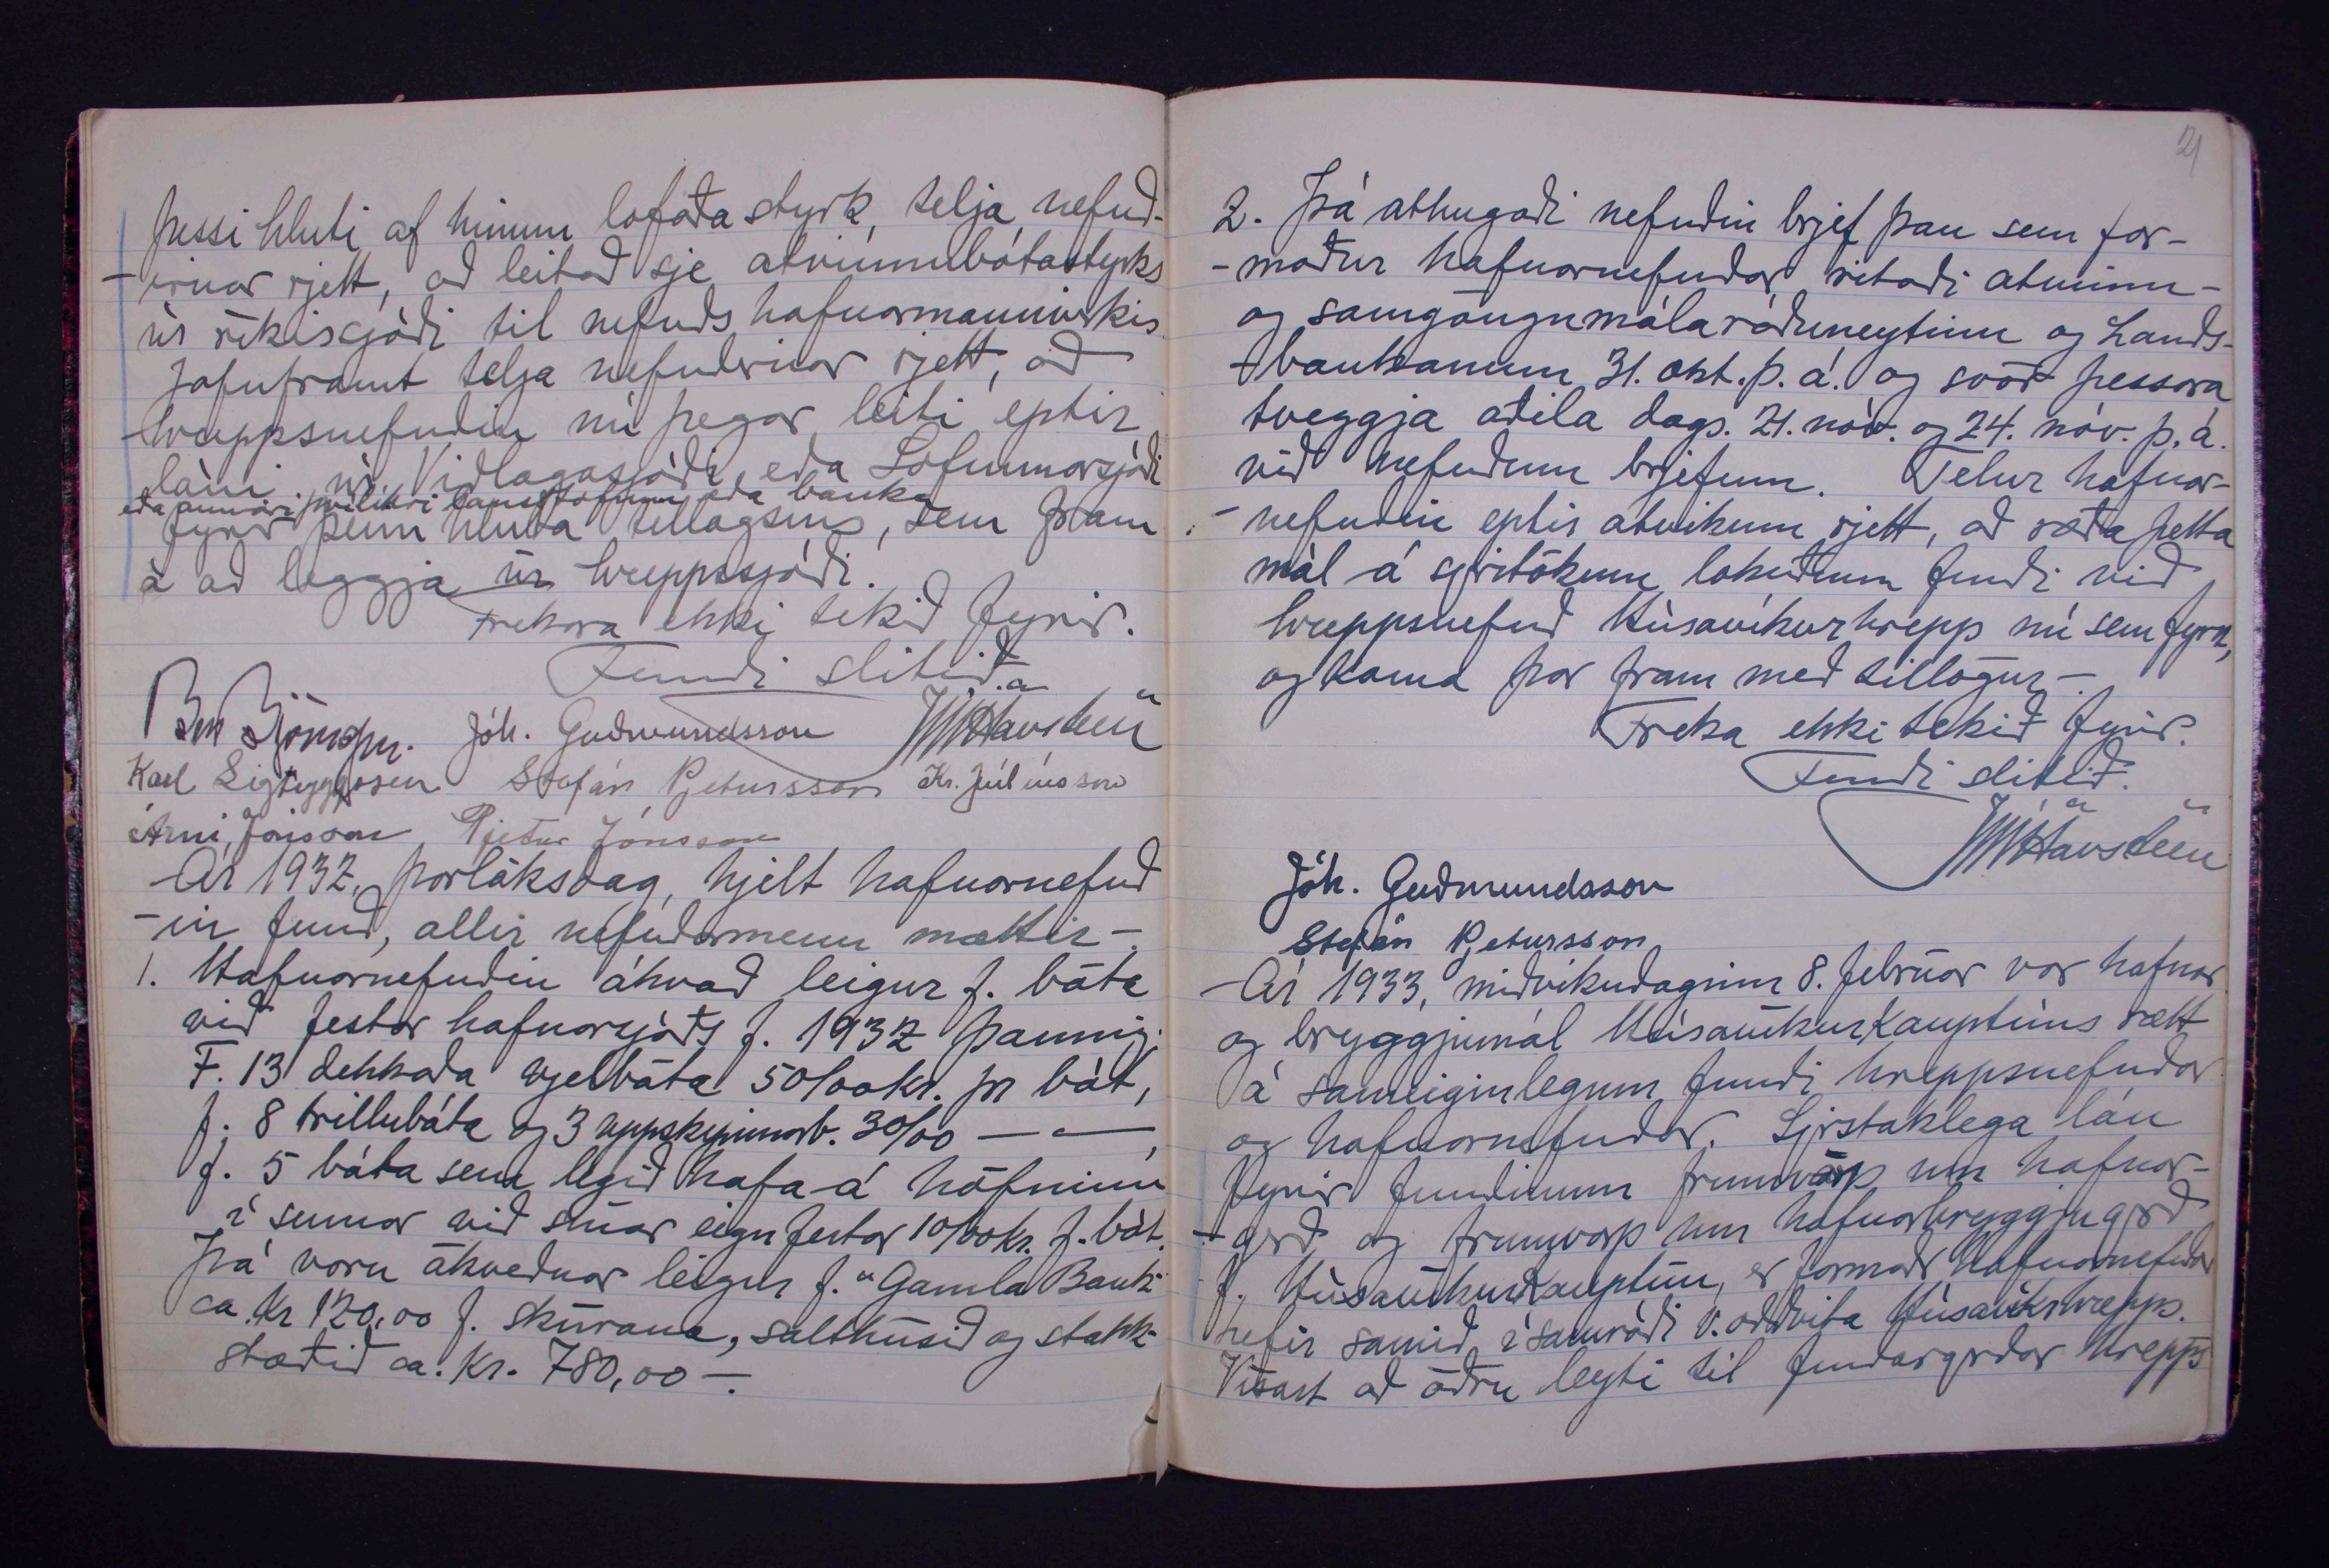 þessi hluti af hinum lofaða styrk, telja nefnd-
-irnar rjett, að leitað sje atvinnubótastyrks
úr ríkissjóði til nefnds hafnarmannvirkis.
Jafnframt telja nefndirnar rjett, að
hreppsnefndin nú þegar leiti eptir
láni úr Viðlagasjóði eða Söfnunarsjóði
eða annari þvílíkri lánsstofnun eða banka
fyrir þeim hluta tillagsins, sem fram
á að leggja úr hreppssjóði.
Frekara ekki tekið fyrir.
Fundi slitið.
Ben Björnsson. Jóh. Guðmundsson JVHavsteen
Karl Sigtryggsson Stefán Pjetursson Kr. Júlíusson
Árni Jónsson Pjetur Jónsson
Ár 1932, þorláksdag, hjelt hafnarnefnd
-in fund, allir nefndarmenn mættir-.
1. Hafnarnefndin ákvað leigur f. báta
við festar hafnarsjóðs f. 1932 þannig:
F. 13 dekkaða vjelbáta 50/00kr. pr bát,
f. 8 trillubáta og 3 uppskipunarb. 30/00 — " —,
f. 5 báta sem legið hafa á höfninni
í sumar við sínar eigin festar 10/00kr. f. bát.
Þá voru ákveðnar leigur f. "Gamla Bauk"
ca. Kr 120,00 f. skúrana, salthúsið og stakk-
stæðið ca. Kr. 780,00-.
21
2. Þá athugaði nefndin brjef þau sem for-
-maður hafnarnefndar ritaði atvinnu-
og samgöngumálaráðuneytinu og Lands-
-bankanum 31. okt. þ. á. og svör þessara
tveggja aðila dags. 21. nóv. og 24. nóv. þ. á.
við nefndum brjefum. Telur hafnar-
-nefndin eptir atvikum rjett, að ræða þetta
mál á sjerstökum lokuðum fundi við
hreppsnefnd Húsavíkurhrepp nú sem fyrst,
og koma þar fram með tillögur-.
Freka ekki tekið fyrir.
Fundi slitið.
JVHavsteen
Jóh. Guðmundsson
Stefán Pjetursson
Ár 1933, miðvikudaginn 8. febrúar var hafnar
og bryggjumál Húsavíkurkauptúns rætt
á sameiginlegum fundi hreppsnefndar
og hafnarnefndar. Sjrstaklega lán
fyrir fundinum frumvörp um hafnar-
-grð og frumvarp um hafnarbryggjugrð
f. Húsavíkurkauptún, er formaðr hafnarnefndar
hefir samið í samráði v. oddvita Húsavíkrhrepps.
Vísast að öðru leyti til fundargrðar hrepps